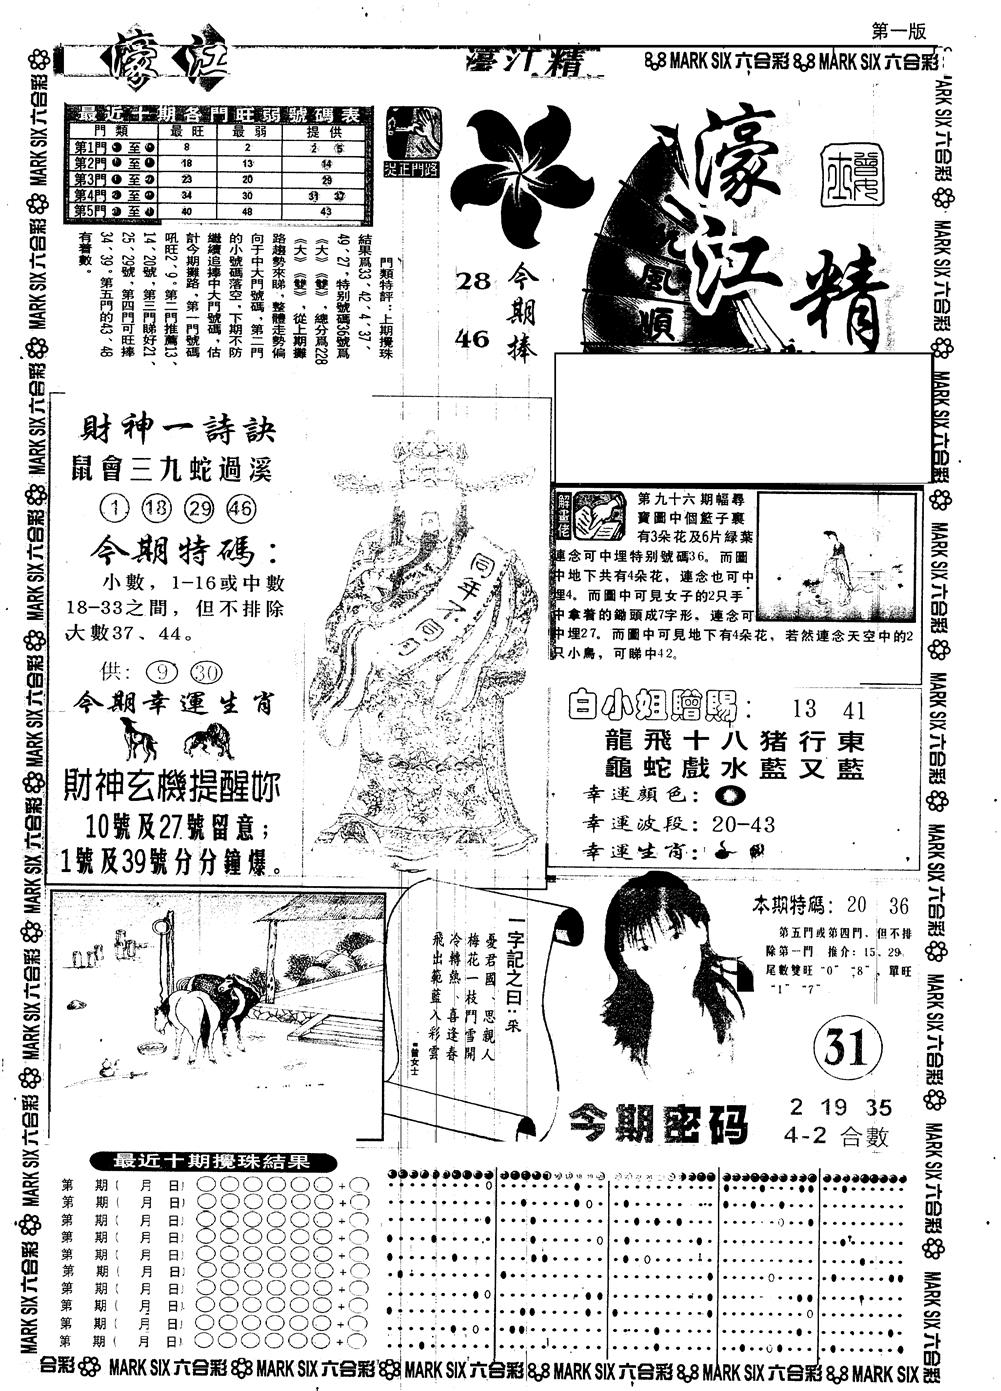 第一版
濠江
濠江精
MARK SIX 六合彩 MARK SIX 六合彩
最近十期各門旺弱號碼表
門類 最旺 最弱 提供
第1門 至 8 2 2 5
第2門 至 18 13 14
第3門 至 23 20 29
第4門 至 34 30 31 37
第5門 至 40 48 43
捉正門路
門類特評：上期攪珠
結果爲33、42、4、37、
49、27，特别號碼36號爲
《大》《雙》，總分爲228
《大》《雙》，從上期攤
路趨勢來睇，整體走勢偏
向于中大門號碼，第二門
的小號碼落空，下期不防
繼續追捧中大門號碼，估
計今期攤路，第一門號碼
吼旺2、9。第二門推薦13、
14、20號，第三門睇好21、
25、29號，第四門可旺捧
34、39。第五門的43、46
有着數。
今期捧
28
46
濠江精
風順
財神一詩訣
鼠會三九蛇過溪
1 18 29 46
今期特碼：
小數，1-16或中數
18-33之間，但不排除
大數37、44。
供：9 30
今期幸運生肖
財神玄機提醒妳
10號及27號留意；
1號及39號分分鐘爆。
同年不同月
解畫佬
第九十六期幅尋
寶圖中個籃子裏
有3朵花及6片緑葉
連念可中埋特别號碼36。而圖
中地下共有4朵花，連念也可中
埋4。而圖中可見女子的2只手
中拿着的鋤頭成7字形，連念可
中埋27。而圖中可見地下有4朵花，若然連念天空中的2
只小鳥，可睇中42。
白小姐贈賜：13 41
龍飛十八猪行東
龜蛇戲水藍又藍
幸運顔色：
幸運波段：20-43
幸運生肖：
一字記之曰：采
憂君國、思親人
梅花一枝鬥雪開
冷轉熱、喜逢春
飛出範藍入彩雲
■曾女士
本期特碼：20 36
第五門或第四門、但不排
除第一門 推介：15、29
尾數雙旺“0”“8”，單旺
“1”“7”
31
今期密码
2 19 35
4-2 合數
最近十期攪珠結果
第 期( 月 日) +
第 期( 月 日) +
第 期( 月 日) +
第 期( 月 日) +
第 期( 月 日) +
第 期( 月 日) +
第 期( 月 日) +
第 期( 月 日) +
第 期( 月 日) +
第 期( 月 日) +
合彩 MARK SIX 六合彩 MARK SIX 六合彩 MARK SIX 六合彩 MARK SIX 六合彩 MARK SIX 六合彩 MARK SIX